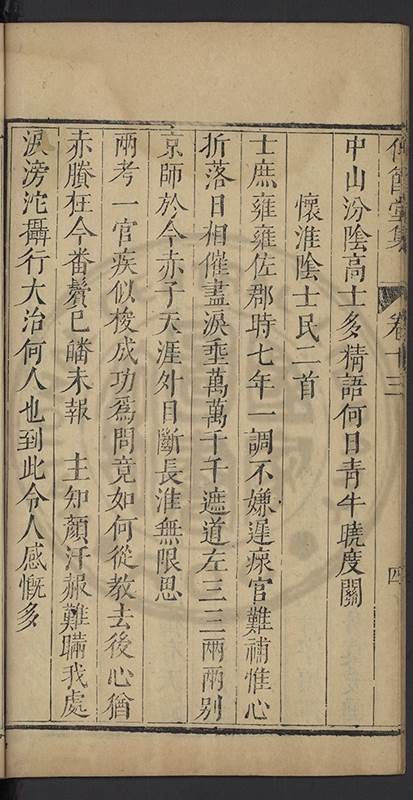 堂集 卷十三 四
中山汾陰高士多精語何日青牛曉度關
懷淮陰士民二首
士庶雍雍佐郡時七年一調不嫌遲瘝官難補惟心
折落日相催盡淚垂萬萬千千遮道左三三兩兩別
京師於今赤子天涯外目斷長淮無限思
兩考一官疾似梭成功爲問竟如何從教去後心猶
赤賸在今番鬢已皤未報 主知顏汗赧難瞞我處
淚滂沱攝行大治何人也到此令人感慨多